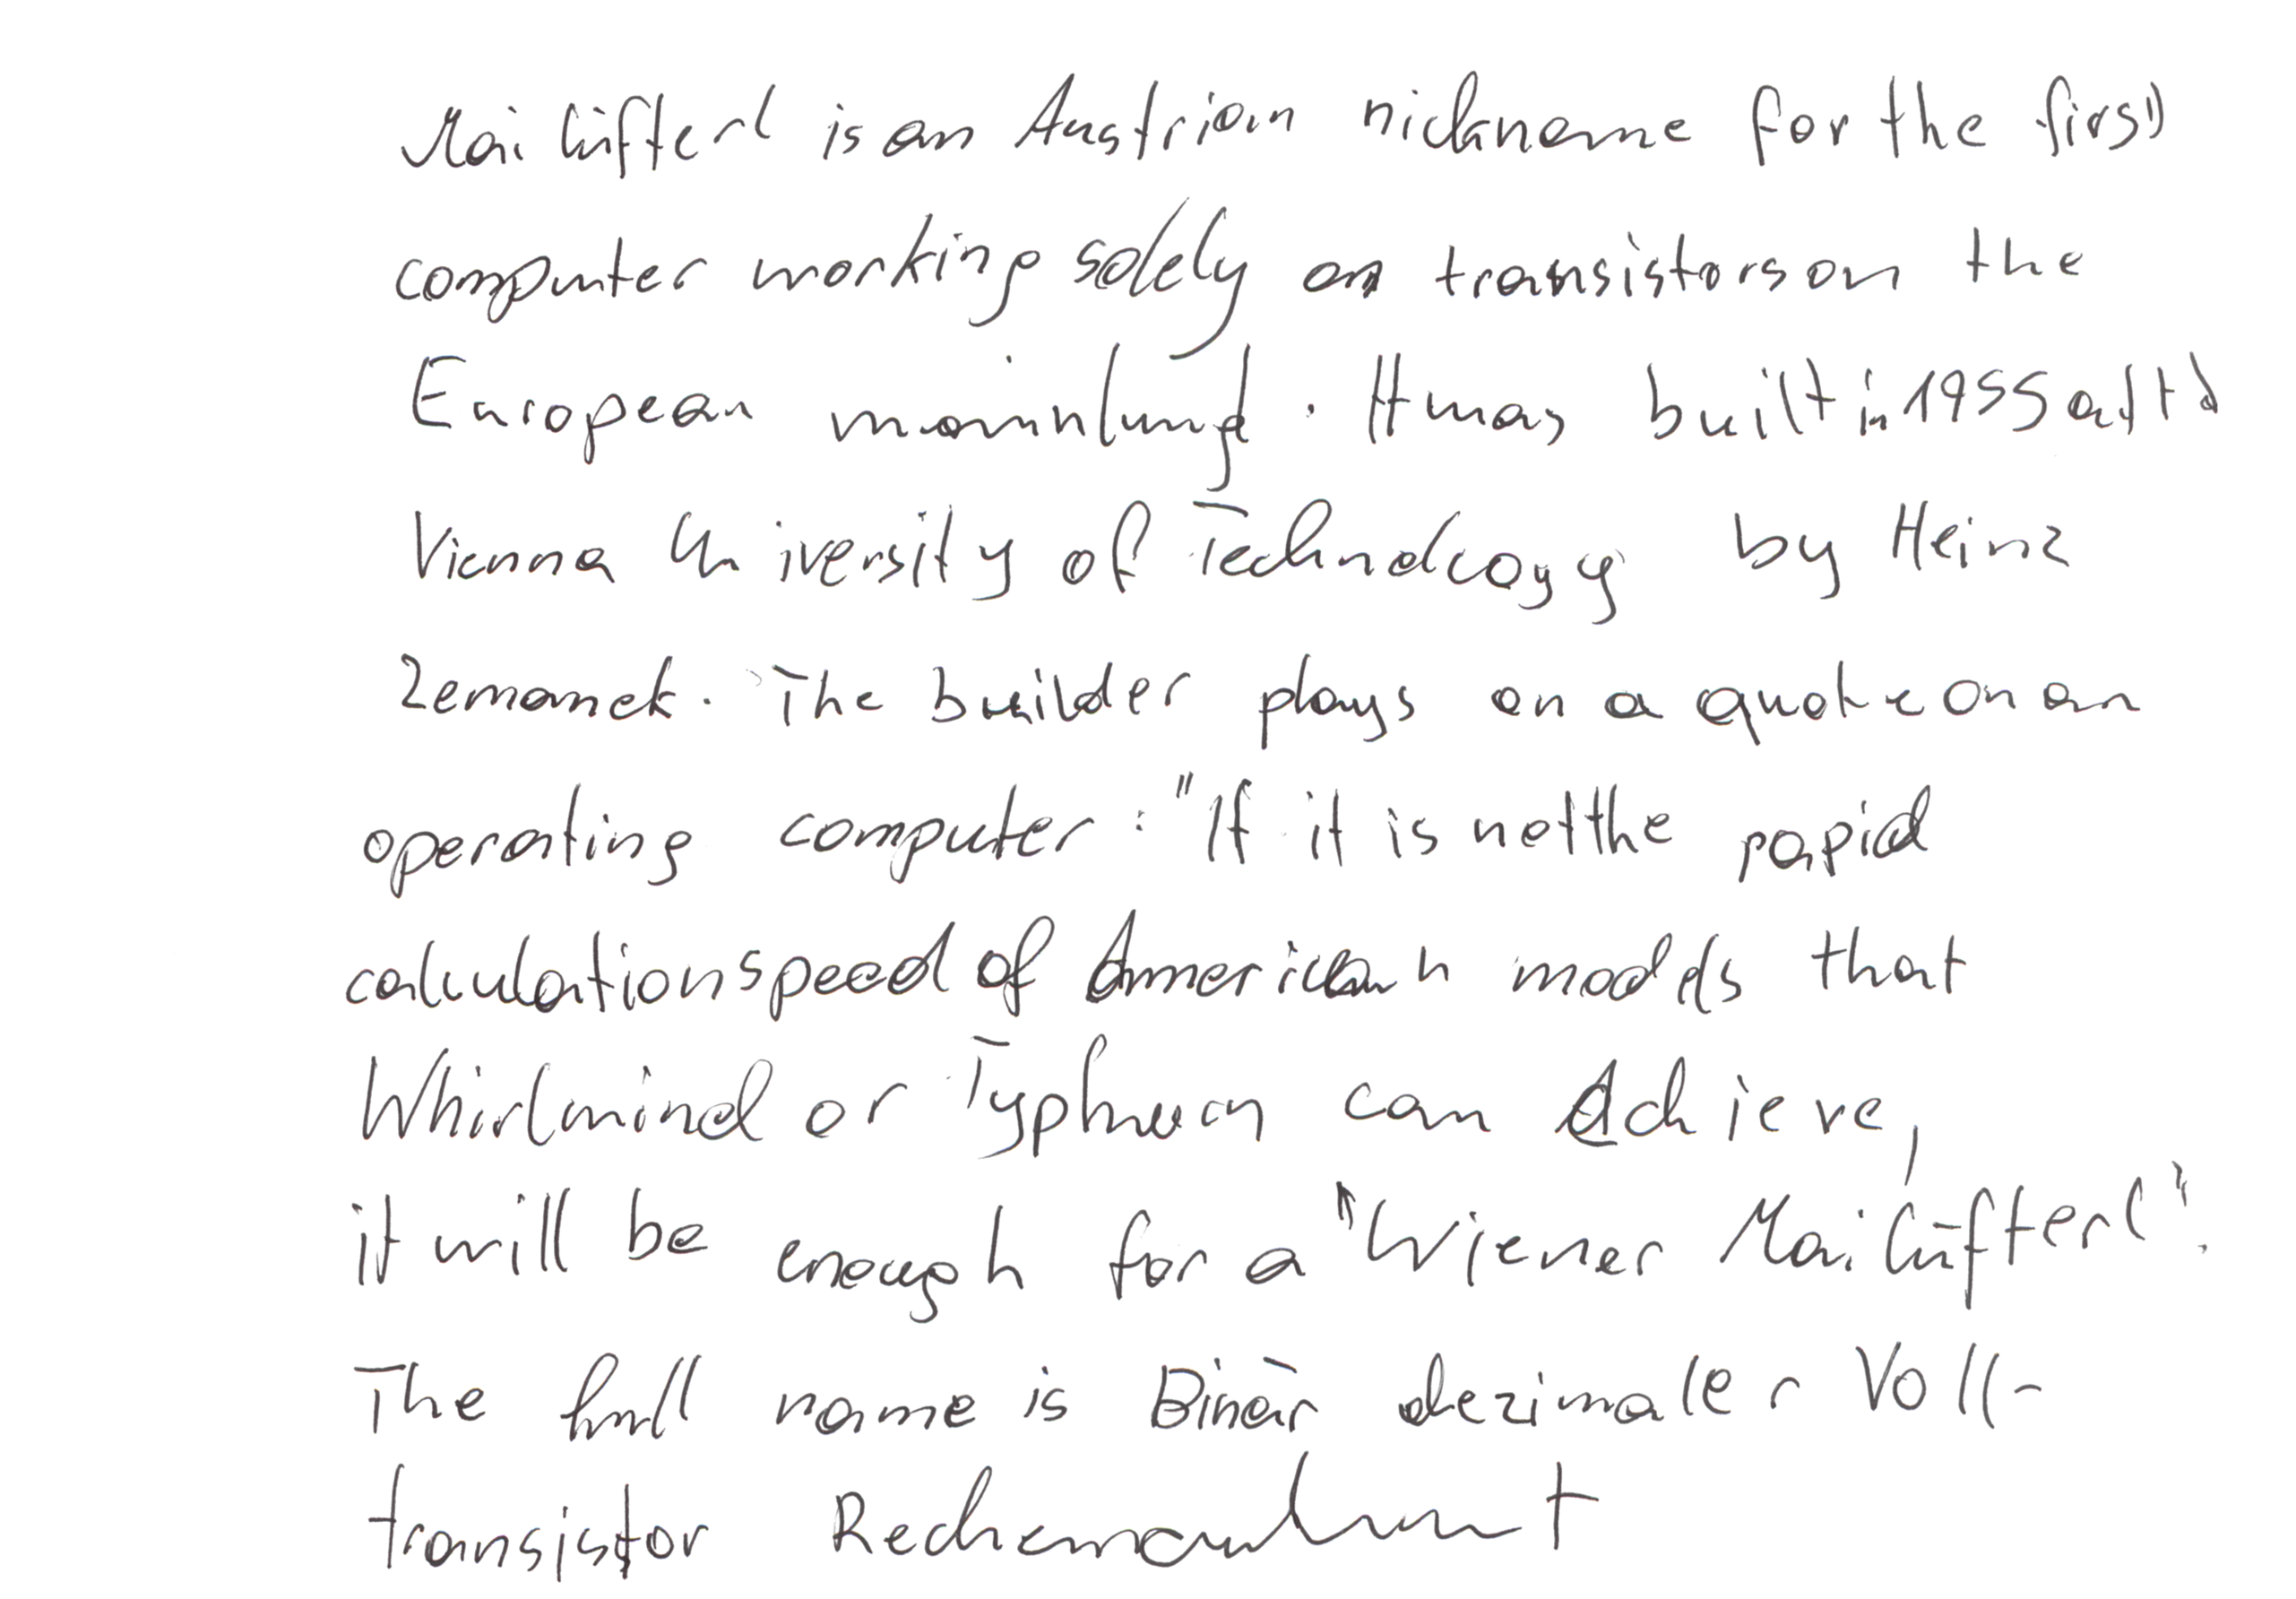 Mailüfterl is an Austrian nickname for the first
computer working solely on transistors on the
European mainland. It was built in 1955 at the
Vienna University of Technology by Heinz
Zemanek. The builder plays on a quote on an
operating computer: "If it is not the rapid
calculation speed of American models that
Whirlwind or Typhoon can Achieve,
it will be enough for a "Wiener Mailüfterl".
The full name is Binär dezimaler Voll-
transistor